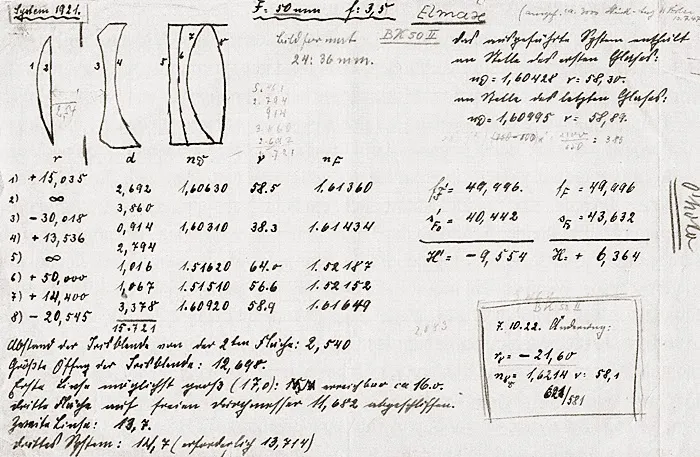 System 1921.
F = 50 mm f: 3,5
Elmax
Bildformat
24:36 mm.
BK 50 II
Das ausgeführte System enthält
an Stelle des ersten Glases:
nD = 1,60428 v = 58,30.
an Stelle des letzten Glases:
nD = 1,60995 v = 58,89.
1 2 3 4 5 6 7 8
r d nD v nF
1) + 15,035
2,692 1.60630 58.5 1.61360
2) ∞
3,860
3) - 30,018
0,914 1.60310 38.3 1.61434
4) + 13,536
2,794
5) ∞
1,016 1.51620 64.0 1.52187
6) + 50,000
1,067 1.51510 56.6 1.52152
7) + 14,400
3,378 1.60920 58.9 1.61649
8) - 20,545
15.721
fF' = 49,996. fF = 49,996
sF' = 40,442 sF = 43,632
H' = - 9,554 H = + 6,364
Abstand der Irisblende von der 2ten Fläche: 2,540
Größte Öffng der Irisblende: 12,698.
Erste Linse möglichst groß (17,0): erreichbar ca 16.0.
Dritte Fläche mit freien Durchmesser 11,682 abgeschliffen.
Zweite Linse: 13,7.
Drittes System: 14,7 (erforderlich 13,714)
BK 50 II
7.10.22. Änderung:
r8 = - 21,60
nD = 1,6214 v = 58,1
621/581